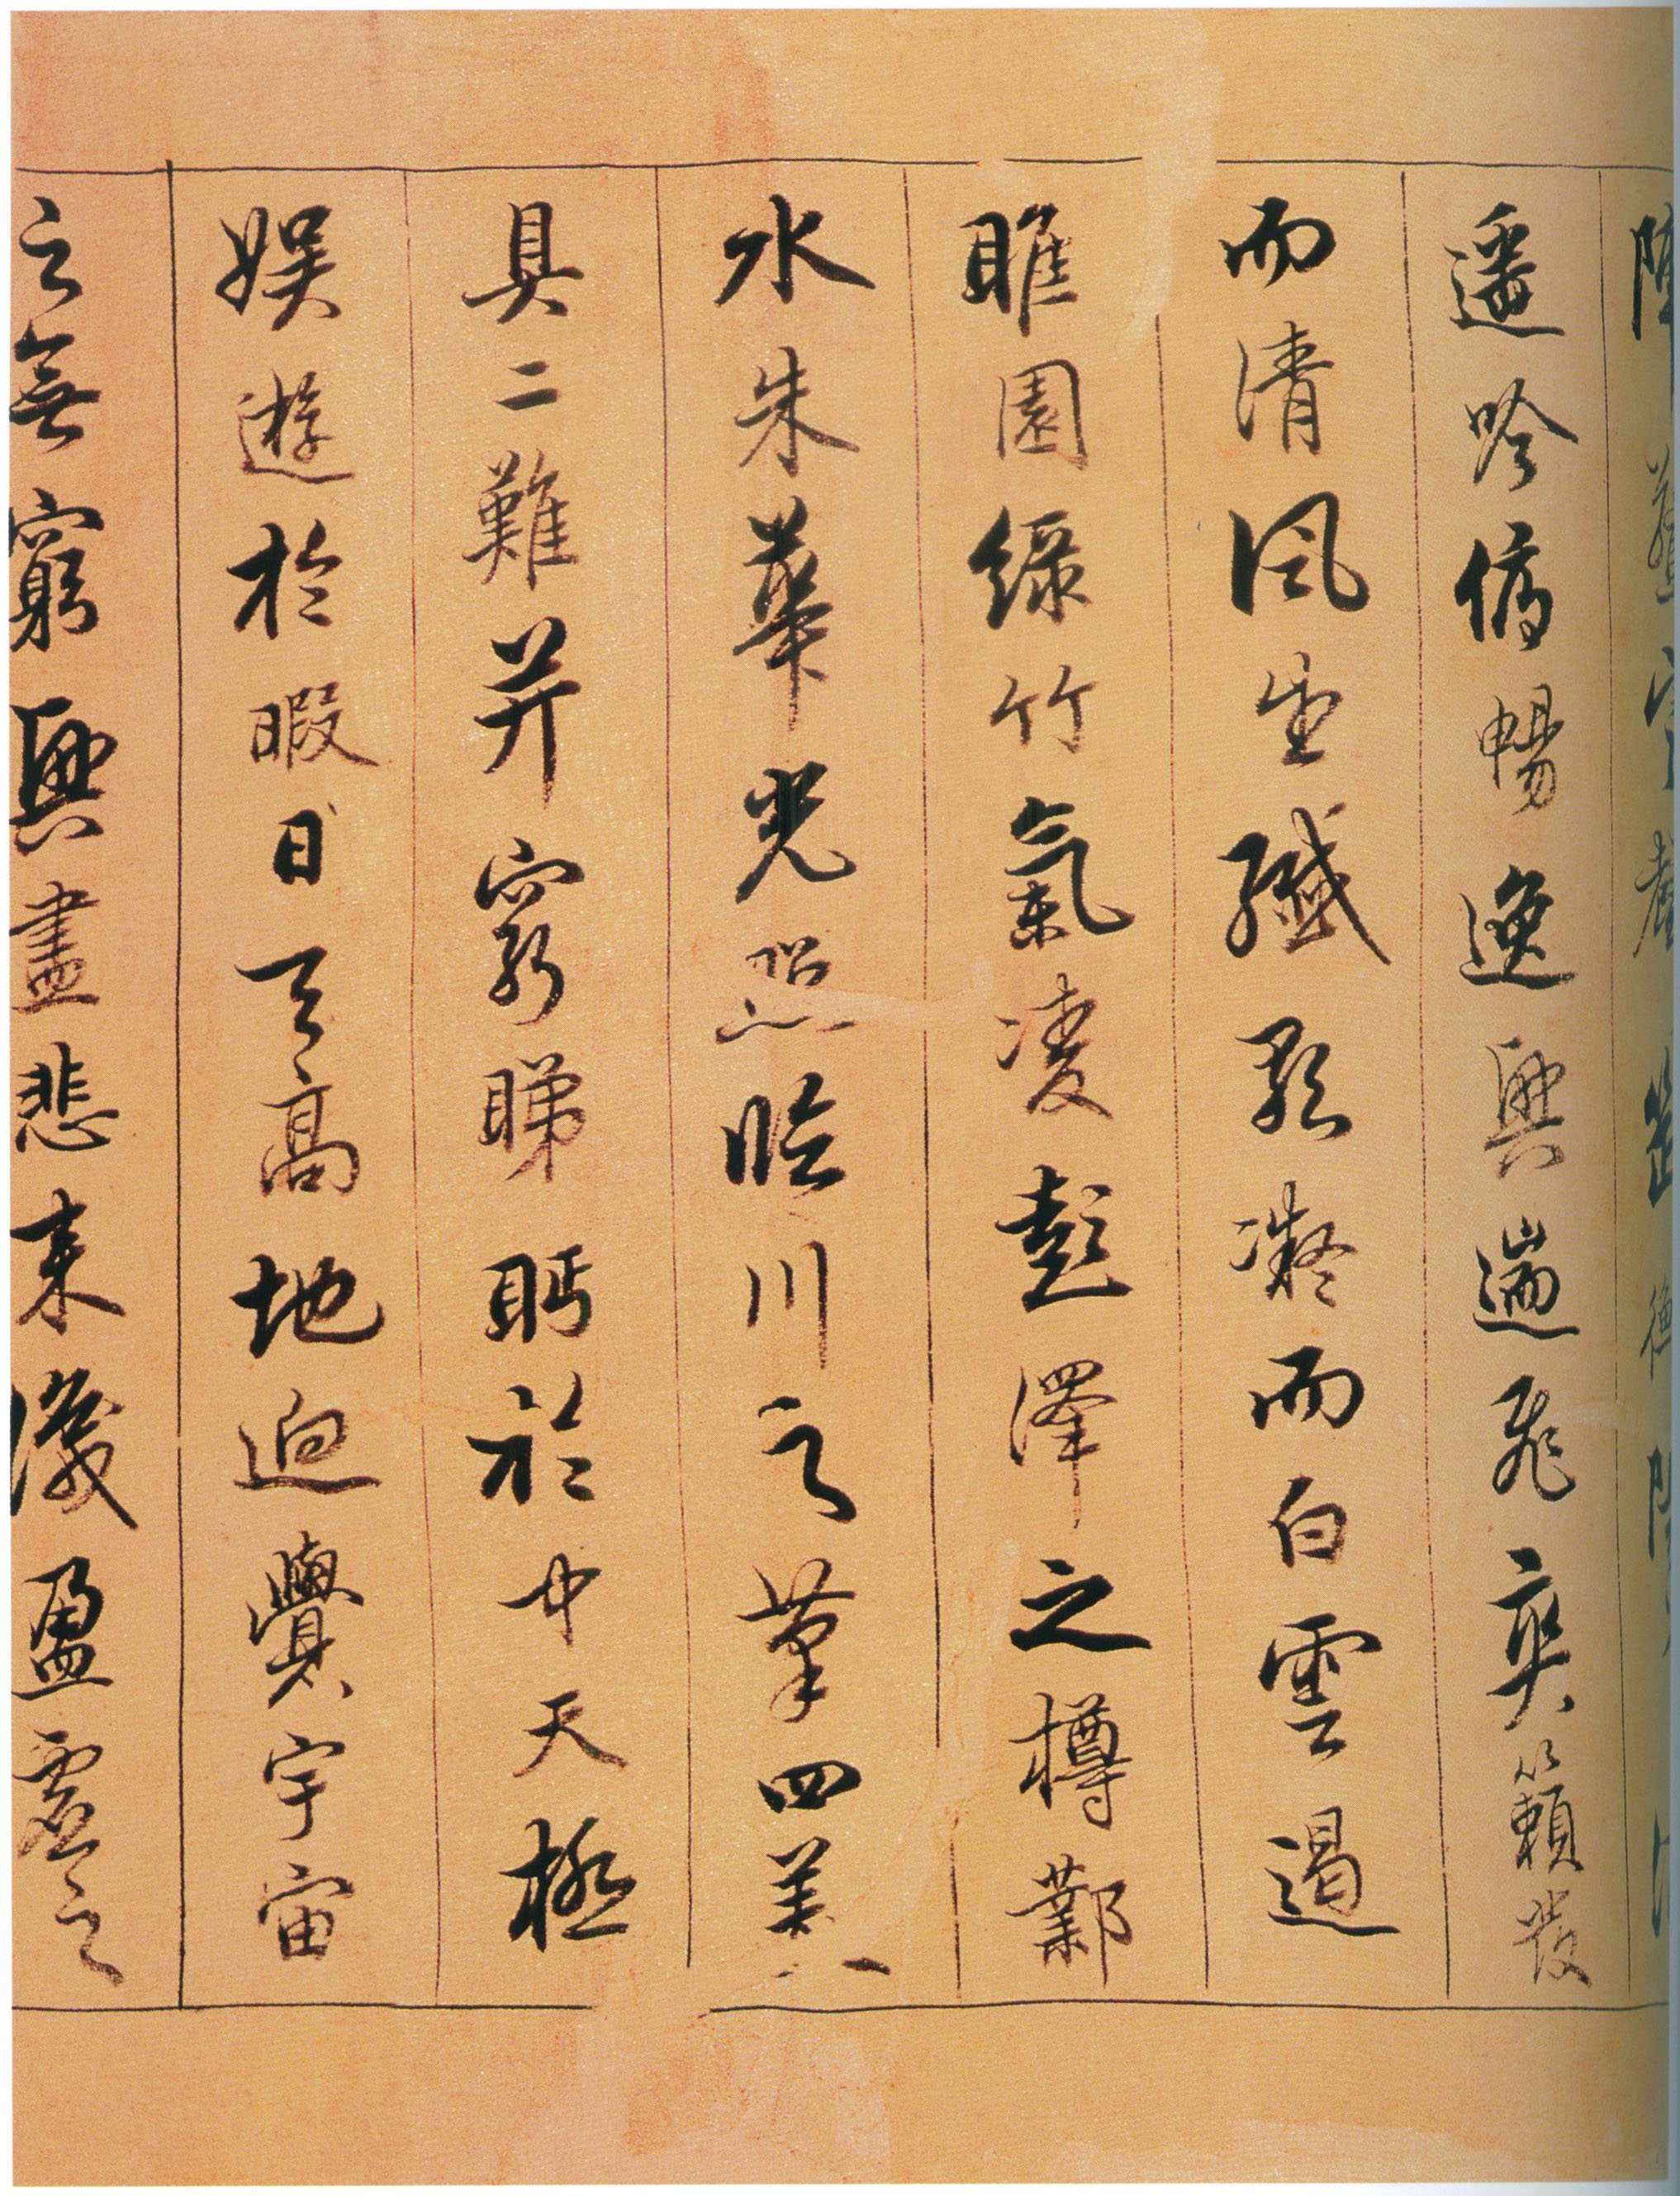 遙吟俯暢逸興遄飛爽籟發
而清風生纖歌凝而白雲遏
睢園綠竹氣凌彭澤之樽鄴
水朱華光照臨川之筆四美
具二難并窮睇眄於中天極
娛遊於暇日天高地迥覺宇宙
之無窮興盡悲來識盈虛之